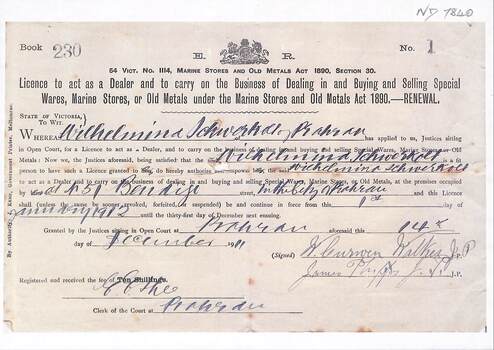 ND 1840
Book 230 E. R. No. 1
54 VICT. No. 1114, MARINE STORES AND OLD METALS ACT 1890, SECTION 30.
Licence to act as a Dealer and to carry on the Business of Dealing in and Buying and Selling Special
Wares, Marine Stores, or Old Metals under the Marine Stores and Old Metals Act 1890.—RENEWAL.
STATE OF VICTORIA,
TO WIT.
WHEREAS Wilhelmina Schwerkolt of Prahran has applied to us, Justices sitting
in Open Court, for a Licence to act as a Dealer, and to carry on the business of dealing in and buying and selling Special Wares, Marine Stores, or Old
Metals: Now we, the Justices aforesaid, being satisfied that the said Wilhelmina Schwerkolt is a fit
person to have such a Licence granted to do hereby authorize empower the said Wilhelmina Schwerkolt
to act as a Dealer and to carry on the business of dealing in and buying and selling Special Wares, Marine Stores, or Old Metals, at the premises occupied
by at No 31 in the City Prahran and this Licence
shall (unless the same be sooner revoked, forfeited, or suspended) be and continue in force from this 1st day of
January 1912 until the thirty-first day of December next ensuing.
Granted by the Justices sitting in Open Court at Prahran aforesaid this 14th
day of December 1911
(Signed) W. Curwen Walker J.P.
James J.P.
Registered and received the fee of Ten Shillings.
Clerk of the Court at Prahran
By Authority: J. Kemp, Government Printer, Melbourne.